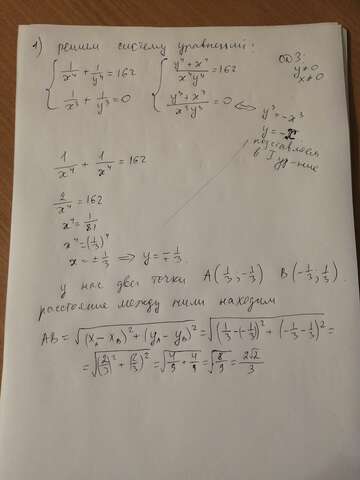 1) решаем систему уравнений:
{ 1/x⁴ + 1/y⁴ = 162 { (y⁴ + x⁴)/(x⁴y⁴) = 162 ОДЗ:
y≠0
x≠0
{ 1/x³ + 1/y³ = 0 { (y³ + x³)/(x³y³) = 0 ⟺ y³ = -x³
y = -x
подставляем
в I ур-ние
1/x⁴ + 1/x⁴ = 162
2/x⁴ = 162
x⁴ = 1/81
x⁴ = (1/3)⁴
x = ±1/3 ⟹ y = ∓1/3.
у нас две точки A(1/3; -1/3) B(-1/3; 1/3).
расстояние между ними находим
AB = √((x_A - x_B)² + (y_A - y_B)²) = √((1/3 - (-1/3))² + (-1/3 - 1/3)²) =
= √((2/3)² + (2/3)²) = √(4/9 + 4/9) = √(8/9) = 2√2/3